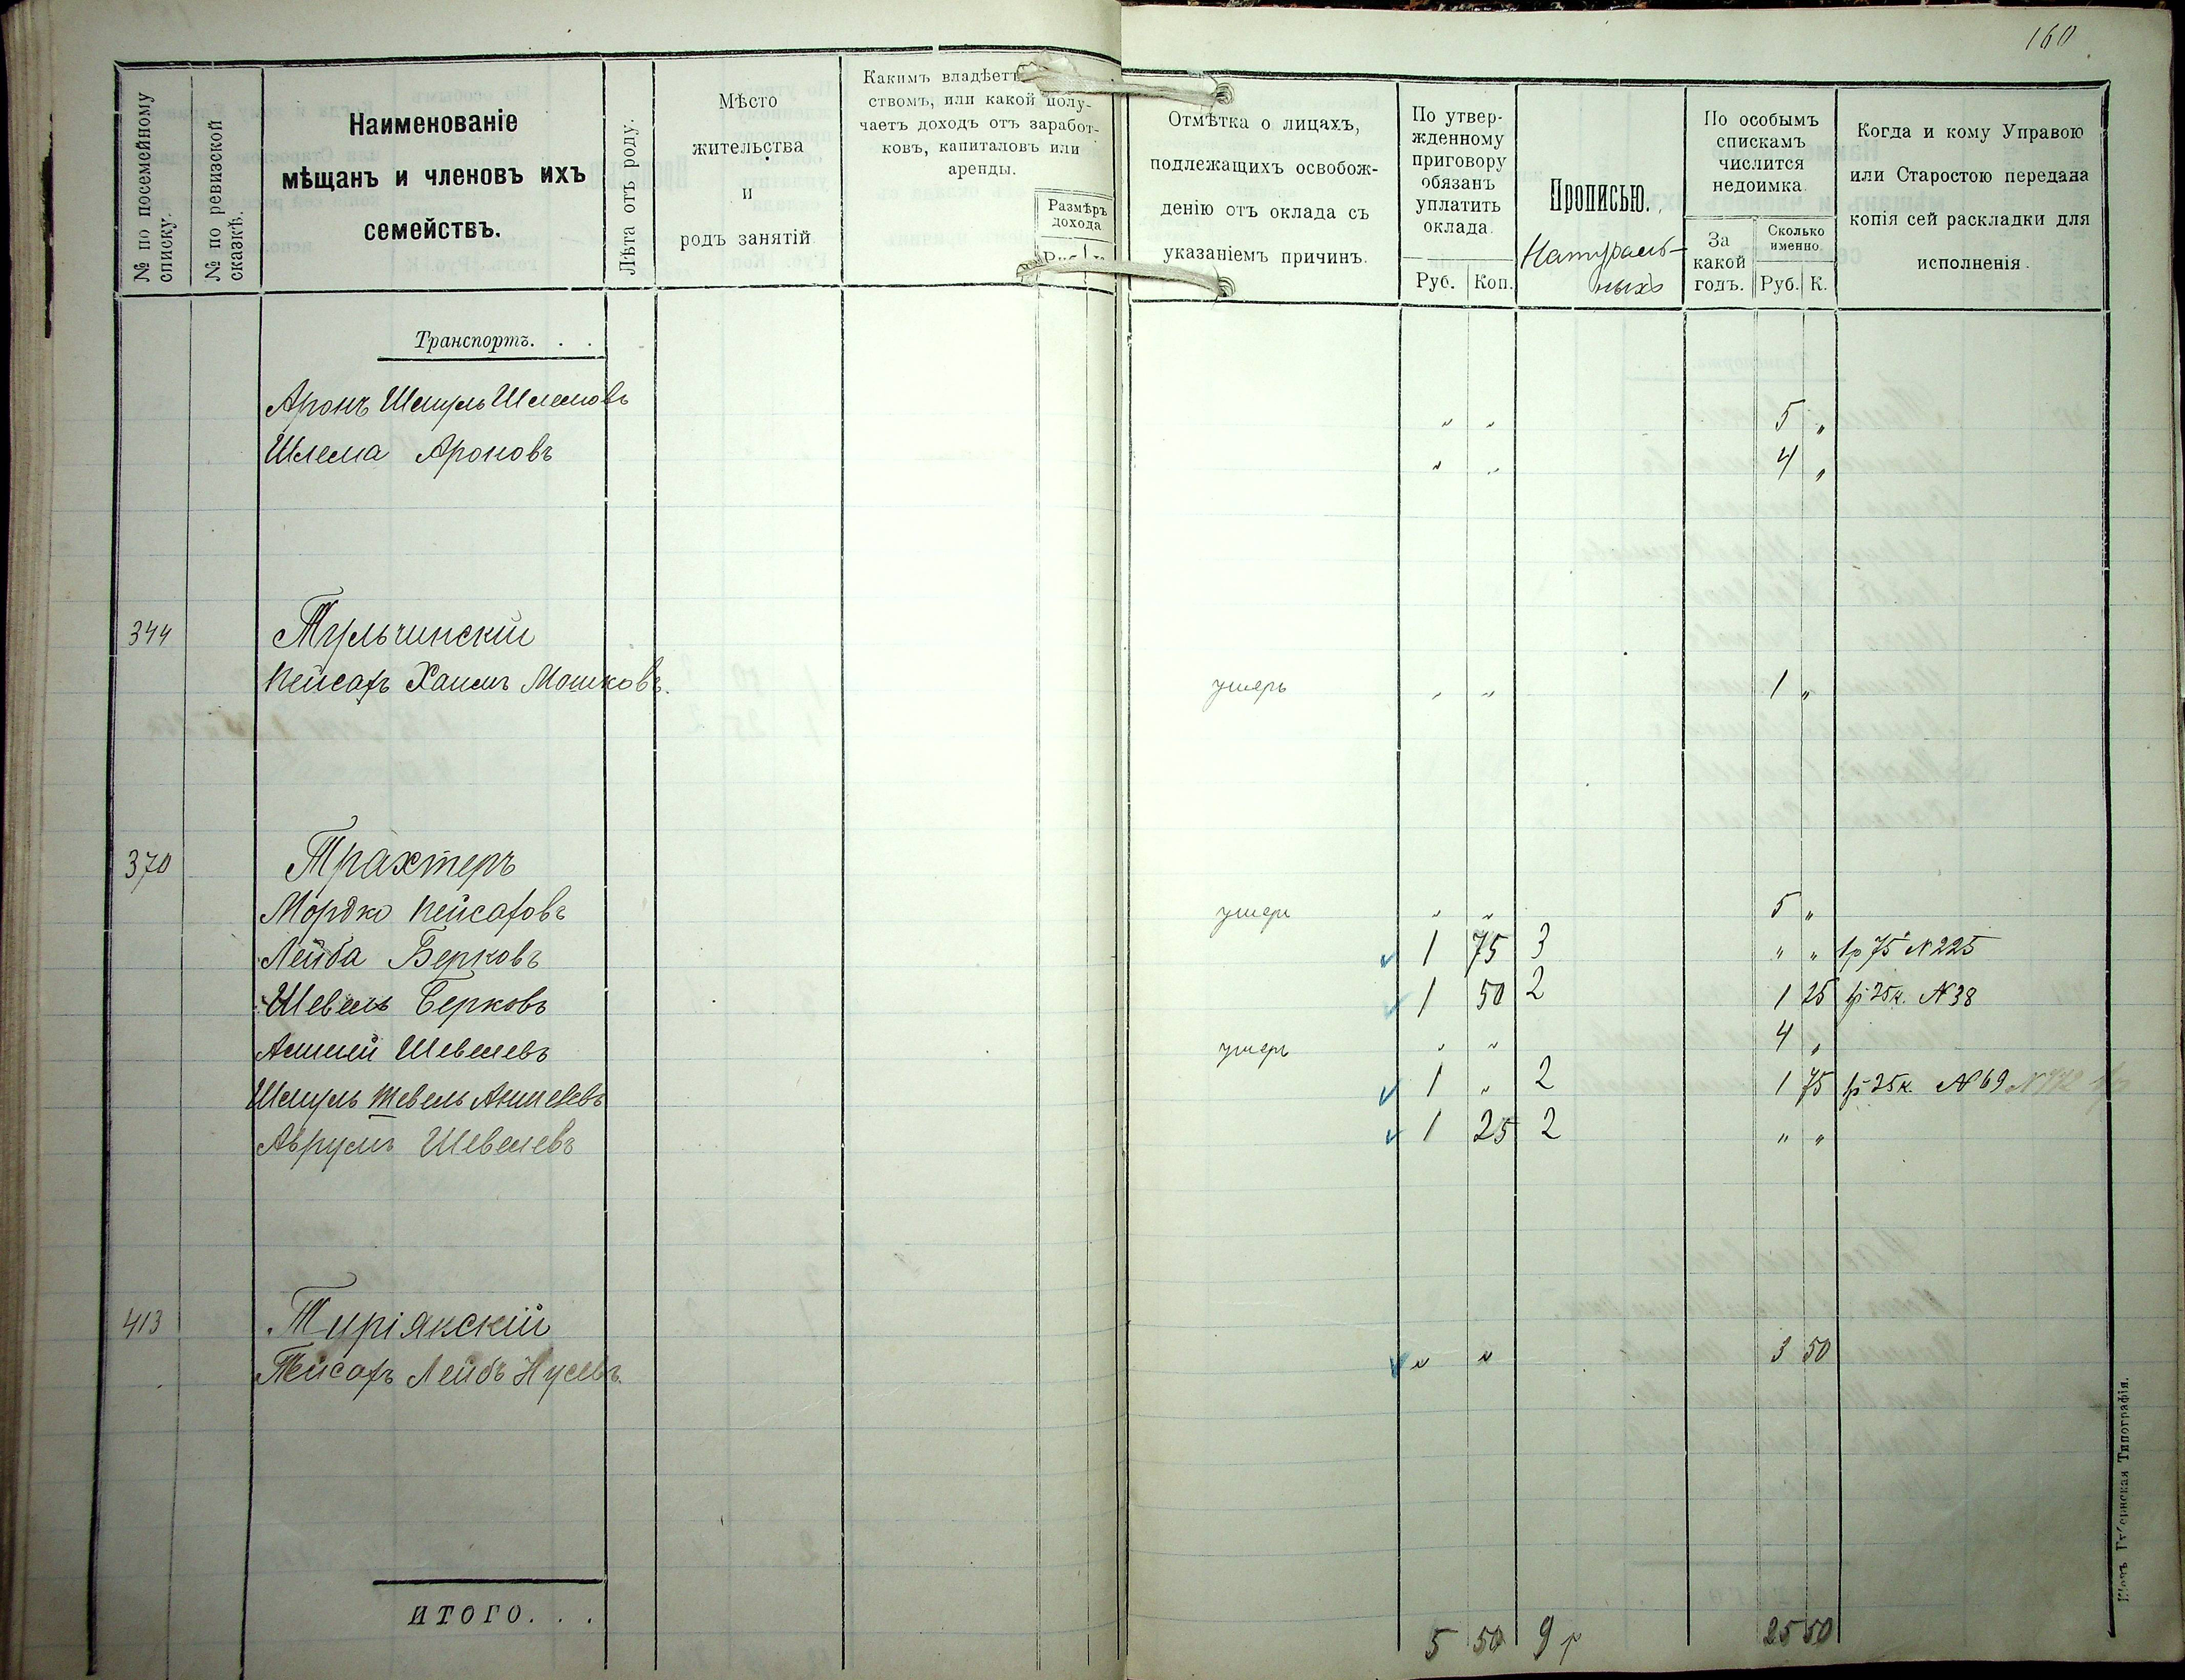 160
№ по посемейному списку.
№ по ревизской сказкѣ.
Наименованіе
мѣщанъ и членовъ ихъ
семействъ.
Лѣта отъ роду.
Мѣсто
жительства
и
родъ занятій
Какимъ владѣетъ
ствомъ, или какой полу-
чаетъ доходъ отъ заработ-
ковъ, капиталовъ или
аренды.
Размѣръ
дохода
Руб.
Отмѣтка о лицахъ,
подлежащихъ освобож-
денію отъ оклада съ
указаніемъ причинъ.
По утвер-
жденному
приговору
обязанъ
уплатить
оклада.
Руб. Коп.
Прописью.
Натураль-
ныхъ
По особымъ
спискамъ
числится
недоимка.
За
какой
годъ.
Сколько
именно.
Руб. К.
Когда и кому Управою
или Старостою передана
копія сей раскладки для
исполненія.
Транспортъ. . .
Аронъ Шмуль Шлемовъ " " 5 "
Шлема Ароновъ " " 4 "
344 Тульчинскій
Пейсахъ Хаимъ Мошковъ. умеръ " " 1 "
370 Трахтеръ
Мордко Пейсаховъ умеръ " " 5 "
Лейба Берковъ 1 75 3 " " 1р 75 № 225
Шевель Берковъ 1 50 2 1 25 1р 25к. № 38
Аншей Шевелевъ умеръ " " 4 "
Шмуль Тевель Аншеевъ 1 " 2 1 75 1р 25к. № 69
Аврумъ Шевелевъ 1 25 2 " "
413 Тиріякскій
Пейсахъ Лейбъ Нусевъ. " " 3 50
ИТОГО. . . 5 50 9 25 50
Кіевъ Губернская Типографія.